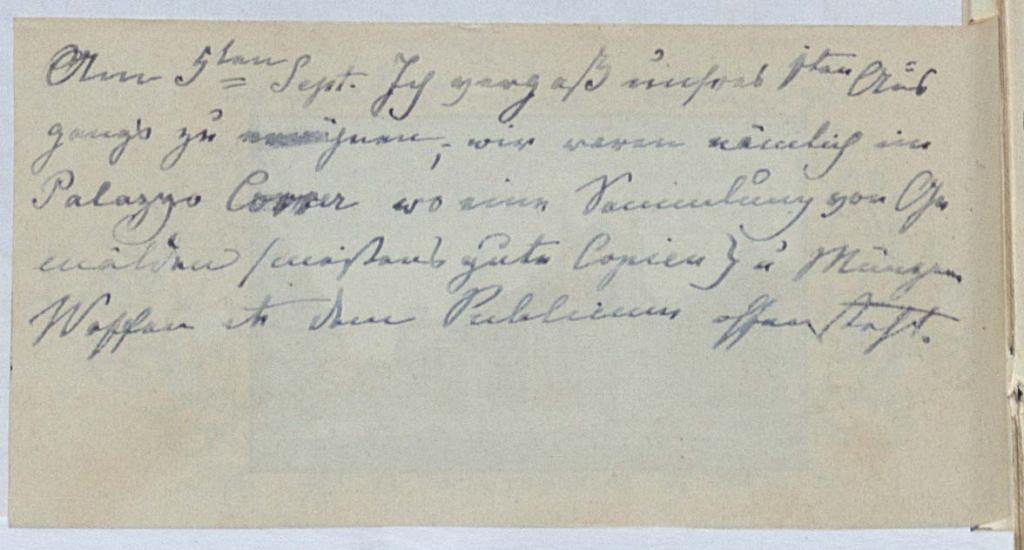 Am 5ten Sept. Ich vergaß unsres 1sten Aus
gangs zu erwähnen, wir waren nämlich im
Palazzo Correr wo eine Sammlung von Ge
mälden (meistens gute Copien) u Münzen
Waffen etc dem Publicum offen steht.